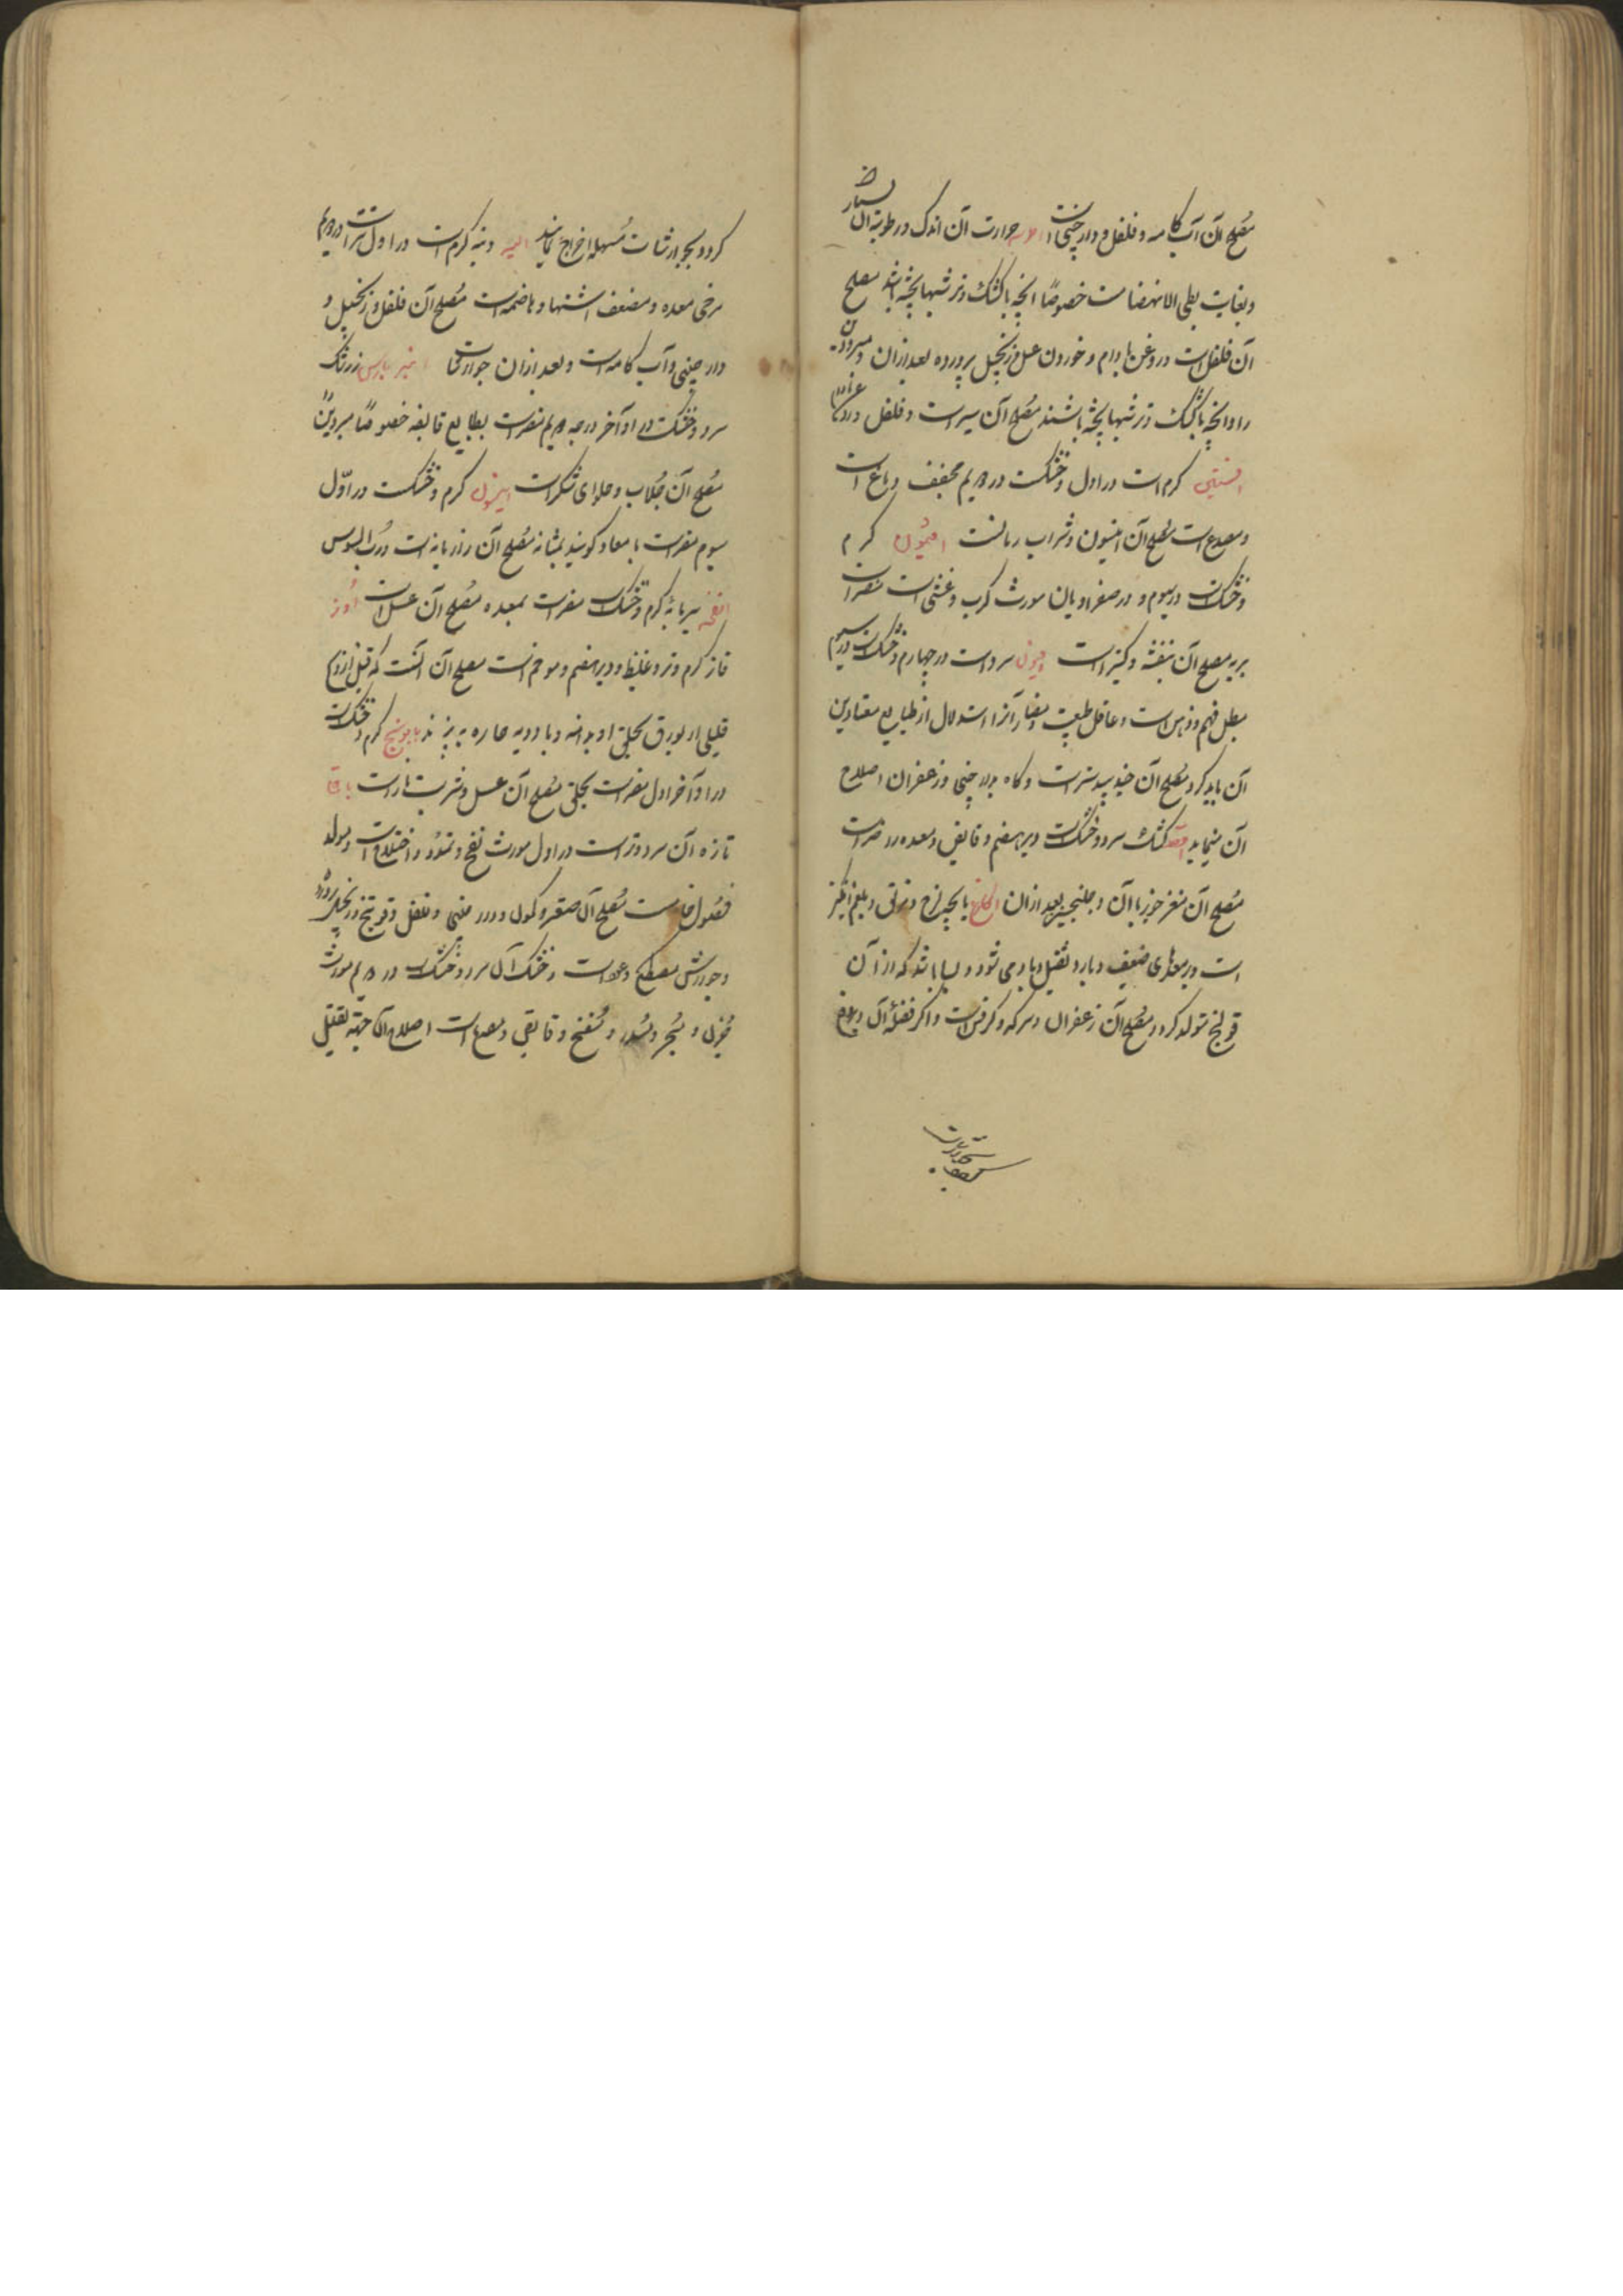 مُصلح آن آب کامه و فلفل و دارچینی است حرارت آن اندک و رطوبة آن بسیار
و بغایت بطی الانهضام است خصوصًا انچه با کشک و ترشیها پخته باشد مصلح
آن فلفل است و روغن بادام و خوردن عسل و زنجبیل پرورده بعد از آن و مبرودین
را و انچه با کشک و ترشیها پخته باشند مُصلح آن سیر است و فلفل
افسنتین گرم است در اول و خشکست در دویم مجفف دماغ است
و مصدع است مُصلح آن انیسون و شراب رمانست افتیمون گرم
و خشک است در سیوم و در صفراویان مورث کرب و غشی است مضر است
بریه مصلح آن بنفشه و کتیراست افیون سرد است در چهارم و خشک است در سیوم
مبطل فهم و ذهن است و عاقل طبیعت و مضار آنرا استدلال از طبایع معتادین
آن باید کرد مُصلح آن جندبیدستر است و گاه بدارچینی و زعفران اصلاح
آن مینماید اقط کشک سرد و خشک است دیرهضم و قابض و معده را مضر است
مُصلح آن مغز جوز با آن و جلنجبین بعد از آن پاچه لزج و بلغم انگیز
است و در معدهای ضعیف و بارد ثقیل و بارد می شود و بسا باشد که از آن
قولنج تولد کردد مُصلح آن زعفران و سرکه و کرفس است و اکر
کردد بجوارشات مُسهله اخراج نمایند الیه دنبه گرم است در اول و تر است در دویم
مرخی معده و مضعف اشتها و هاضمه است مُصلح آن فلفل و زنجبیل و
دارچینی و آب کامه است و بعد از آن جوارشها انبرباریس زرشک
سرد و خشکست در آخر درجه دویم مضر است بطبایع قابضه خصوصًا مبرودین
مُصلح آن جُلاب و حلوای شکر است انیسون گرم و خشکست در اوّل
سیوم مضر است بامعا و گویند بمثانه مُصلح آن رازیانه است و رُب السوس
انفحه پیرمایه گرم و خشک است مضر است بمعده مُصلح آن عسل است اوز
قاز گرم و تر و غلیظ و دیرهضم و موخم است مصلح آن آنست که قبل از ذبح
قلیلی از بورق بحلق او بدمند و با ادویه حاره بپزند بابونج گرم و خشک است
در آخر اول مضر است بحلق مُصلح آن عسل و شربت نار است باقلا
تازه آن سرد و تر است در اول مورث نفخ و تمدد و اختلاج است و مولد
فضول خام است مُصلح آن صعتر و کمون و دارچینی و فلفل و فودنج و زنجبیل پرورده
و جوارش مصطکی و عود است و خشک آن سرد و خشک است در دویم مورث
حُزن و بُخر و سُدر و مُنفخ و قابض و مصدع است اصلاح آن جهة تقلیل